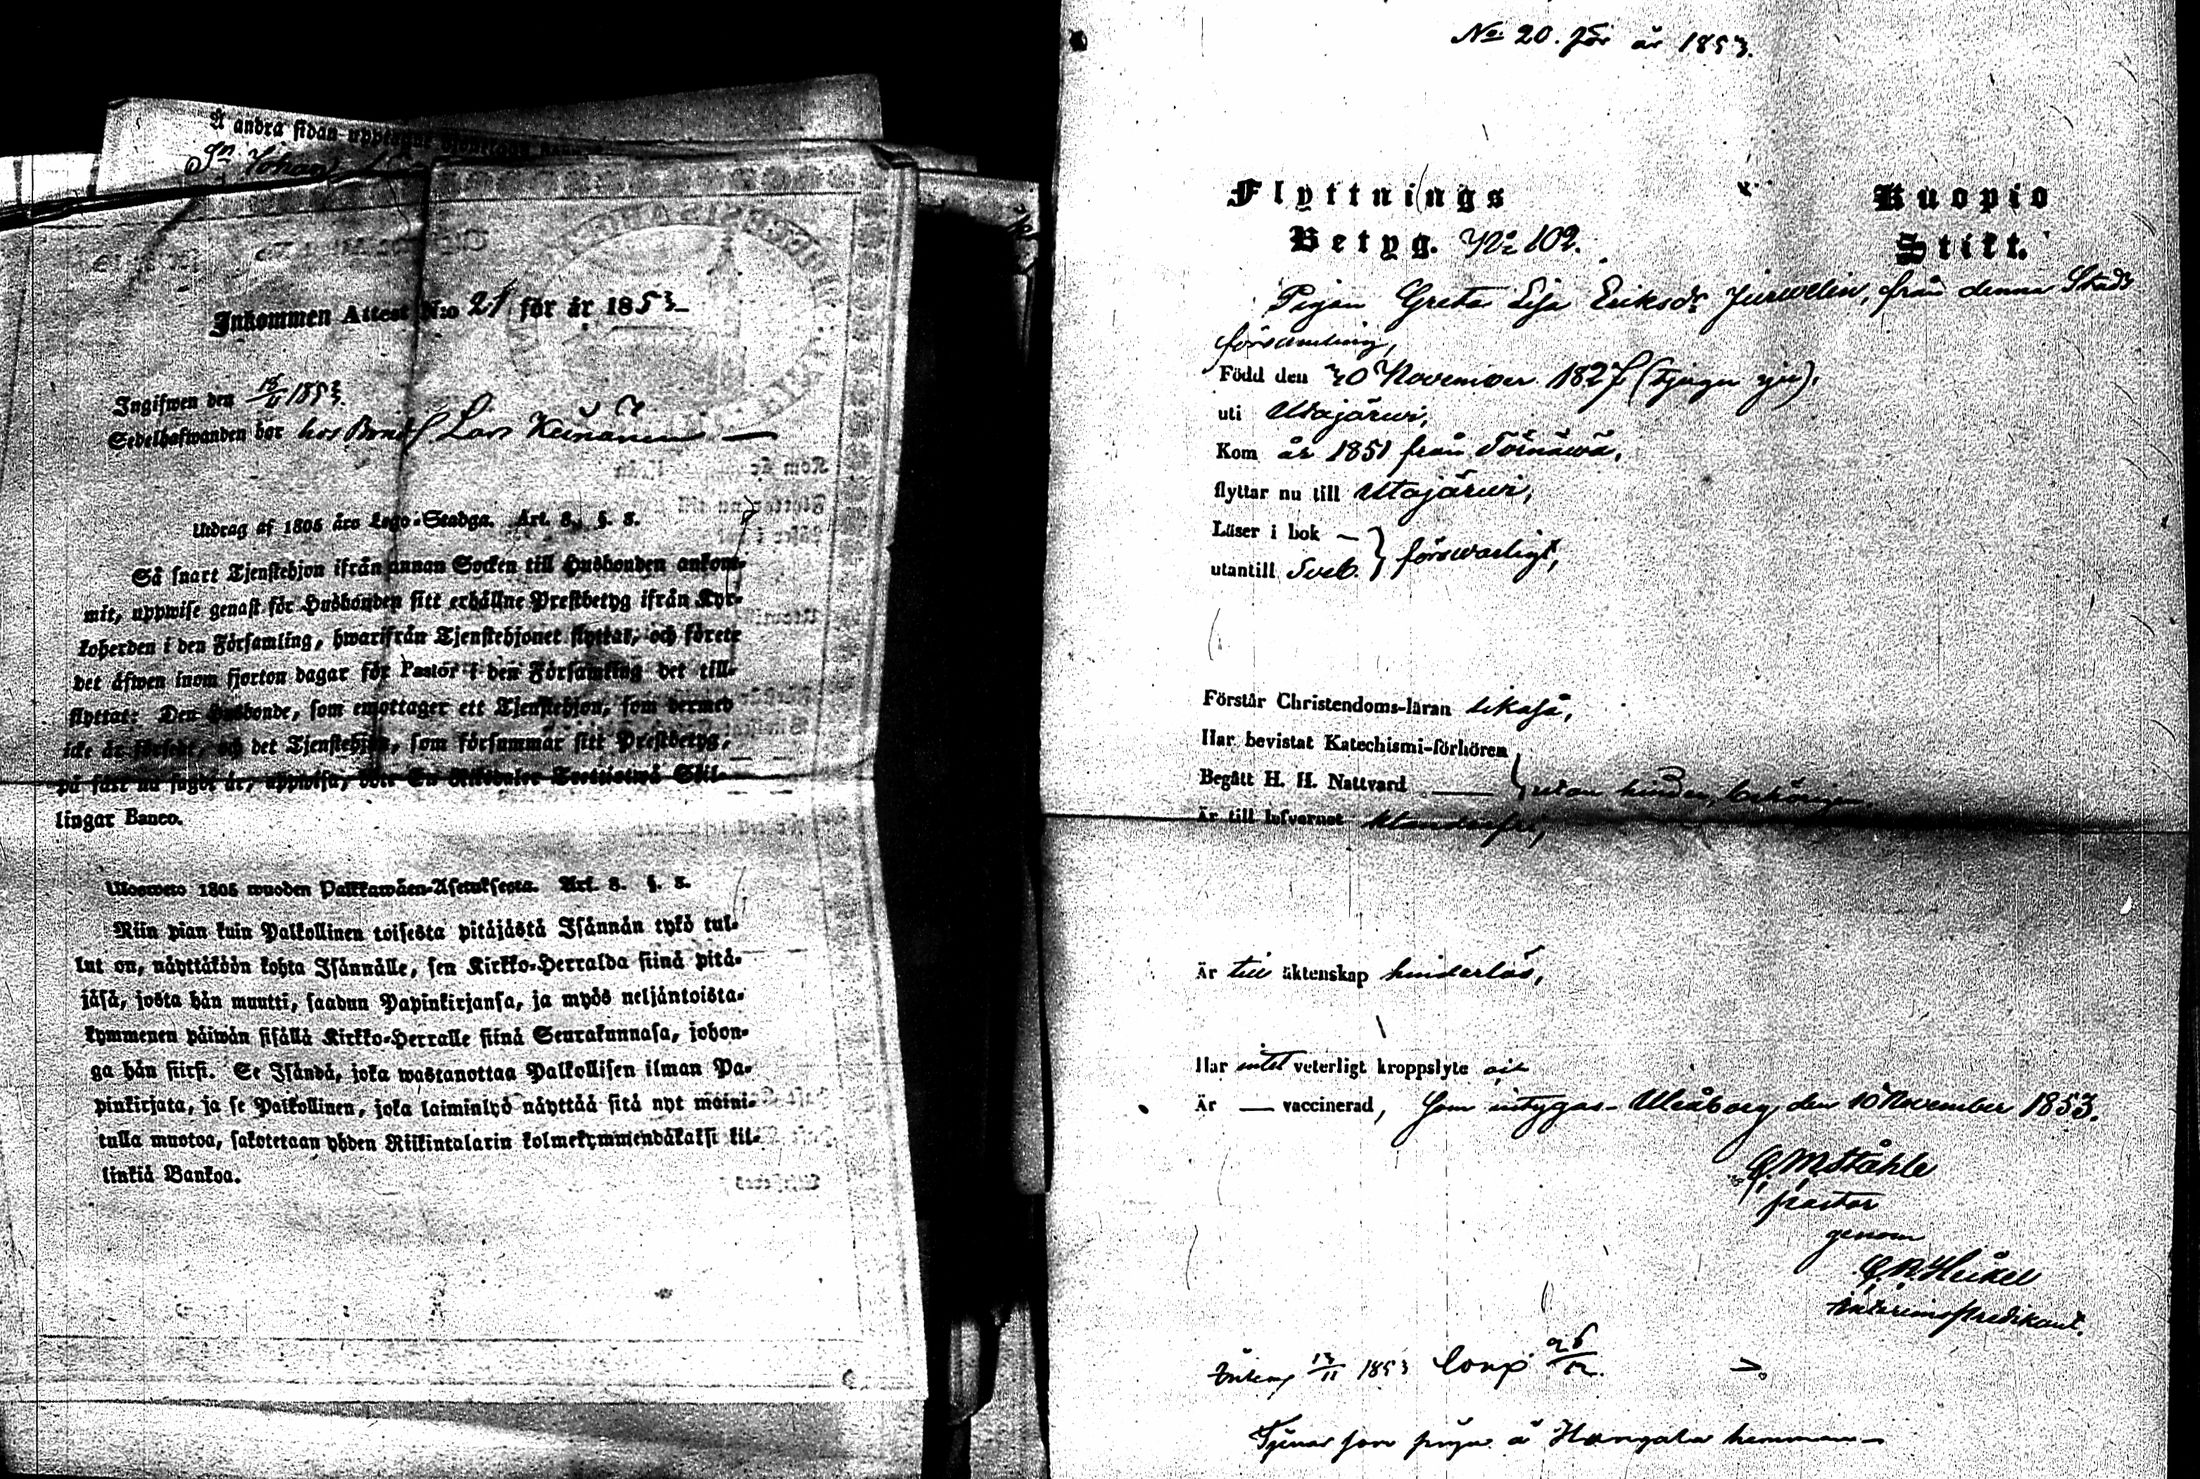 Å andra sidan
Sn Johan
Inkommen Attest N:o 21 för år 1853
Ingifwen den 18/11 1853.
Sedelhafwanden bor hos Bond Lars Keinänen
Utdrag af 1805 års Lego-Stadga. Art. 8. §. 8.
Så snart Tjenstehjon ifrån annan Socken till Husbonden ankom-
mit, uppwise genast för Husbonden sitt erhållne Prestbetyg ifrån Kyr-
koherden i den Församling, hwarifrån Tjenstehjonet flyttat, och förete
det äfwen inom fjorton dagar för Pastor i den Församling det till-
flyttat: Den Husbonde, som emottager ett Tjenstehjon, som dermed
icke är försedt, och det Tjenstehjon, som försummar sitt Prestbetyg,
på sätt nu sagdt är, uppwisa, böte En Riksdaler Trettiotwå Skil-
lingar Banco.
Ulosweto 1805 wuoden Palkkawäen-Asetuksesta. Art. 8. §. 8.
Niin pian kuin Palkollinen toisesta pitäjästä Isännän tykö tul-
lut on, näyttäköön kohta Isännälle, sen Kirkko-Herralda siinä pitä-
jäsä, josta hän muutti, saadun Papinkirjansa, ja myös neljäntoista-
kymmenen päiwän sisällä Kirkko-Herralle siinä Seurakunnasa, johon-
ga hän siirsi. Se Isändä, joka wastanottaa Palkollisen ilman Pa-
pinkirjata, ja se Palkollinen, joka laiminlyö näyttää sitä nyt maini-
tulla muotoa, sakotetaan yhden Riikintalarin kolmekymmendäkaksi kil-
linkiä Bankoa.
No 20. för år 1853.
Flyttnings
Betyg. No 102.
Kuopio
Stift.
Pigan Greta Lisa Eriksdr Jurvelin, från denna Stads
församling,
Född den 30 November 1827 (tjugu sju),
uti Utajärwi,
Kom år 1851 från Törnäwä,
flyttar nu till Utajärwi,
Läser i bok —
utantill Sveb. } förswarligt,
Förstår Christendoms-läran likaså,
Har bevistat Katechismi-förhören
Begått H. H. Nattvard } utan hinder,
Är till lefvernet klanderfri,
Är till äktenskap hinderlös,
Har intet veterligt kroppslyte
Är — vaccinerad, Som intygas. Uleåborg den 10 November 1853.
Ståhle
pastor
genom
Heikel
Interimspredikant.
13/11 1853 26/12.
Tjenar som piga å Hangala hemman